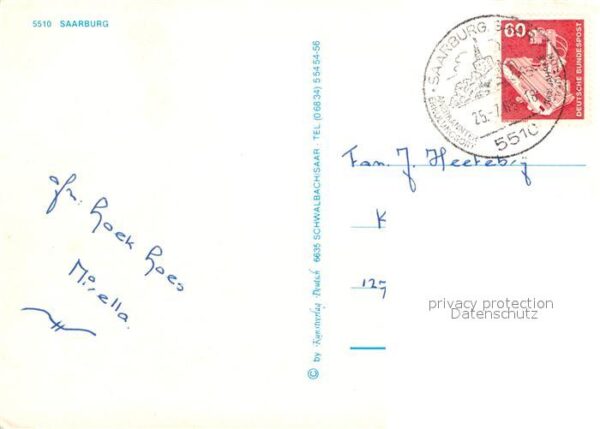 5510 SAARBURG
gr. Loek Loes
Mirella.
© by Kunstverlag Deutsch 6635 SCHWALBACH/SAAR · TEL. (0 68 34) 5 54 54-56
SAARBURG
ERHOLUNGSORT
5510
60
DEUTSCHE BUNDESPOST
Fam. J.
K
127
privacy protection
Datenschutz